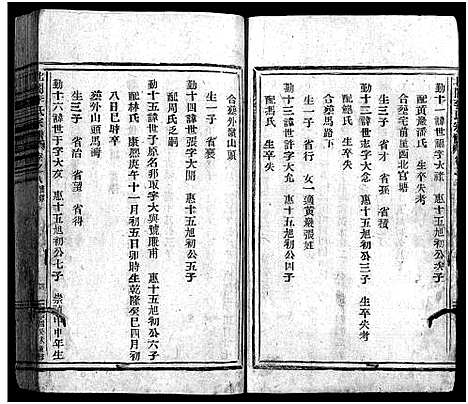 勤十一諱世語字大諸 惠十五旭初公次子
配黃巖潘氏 生卒失考
生三子 省才 省孫 省
合葬宅前里西北官塘
勤十二諱世志字大 惠十五旭初公三子 生卒失考
生二子 省行 女一適黃巖張姓
合葬馬路下
勤十三諱世許字大允 惠十五旭初公四子
配馮氏 生卒失
合葬外嶴山頭
生一子 省襄
勤十四諱世張字大開 惠十五旭初公五子
配周氏乏嗣
勤十五諱世子原名邦取字大與號殿甫 惠十五旭初公六子
配林氏 康熙庚午十一月初五日卯時生乾隆癸巳四月初
八日巳時卒
葬外山頭馬海
生三子 省治 省望 省得
勤十六諱世于字大友 惠十五旭初公七子 崇禎甲申年生